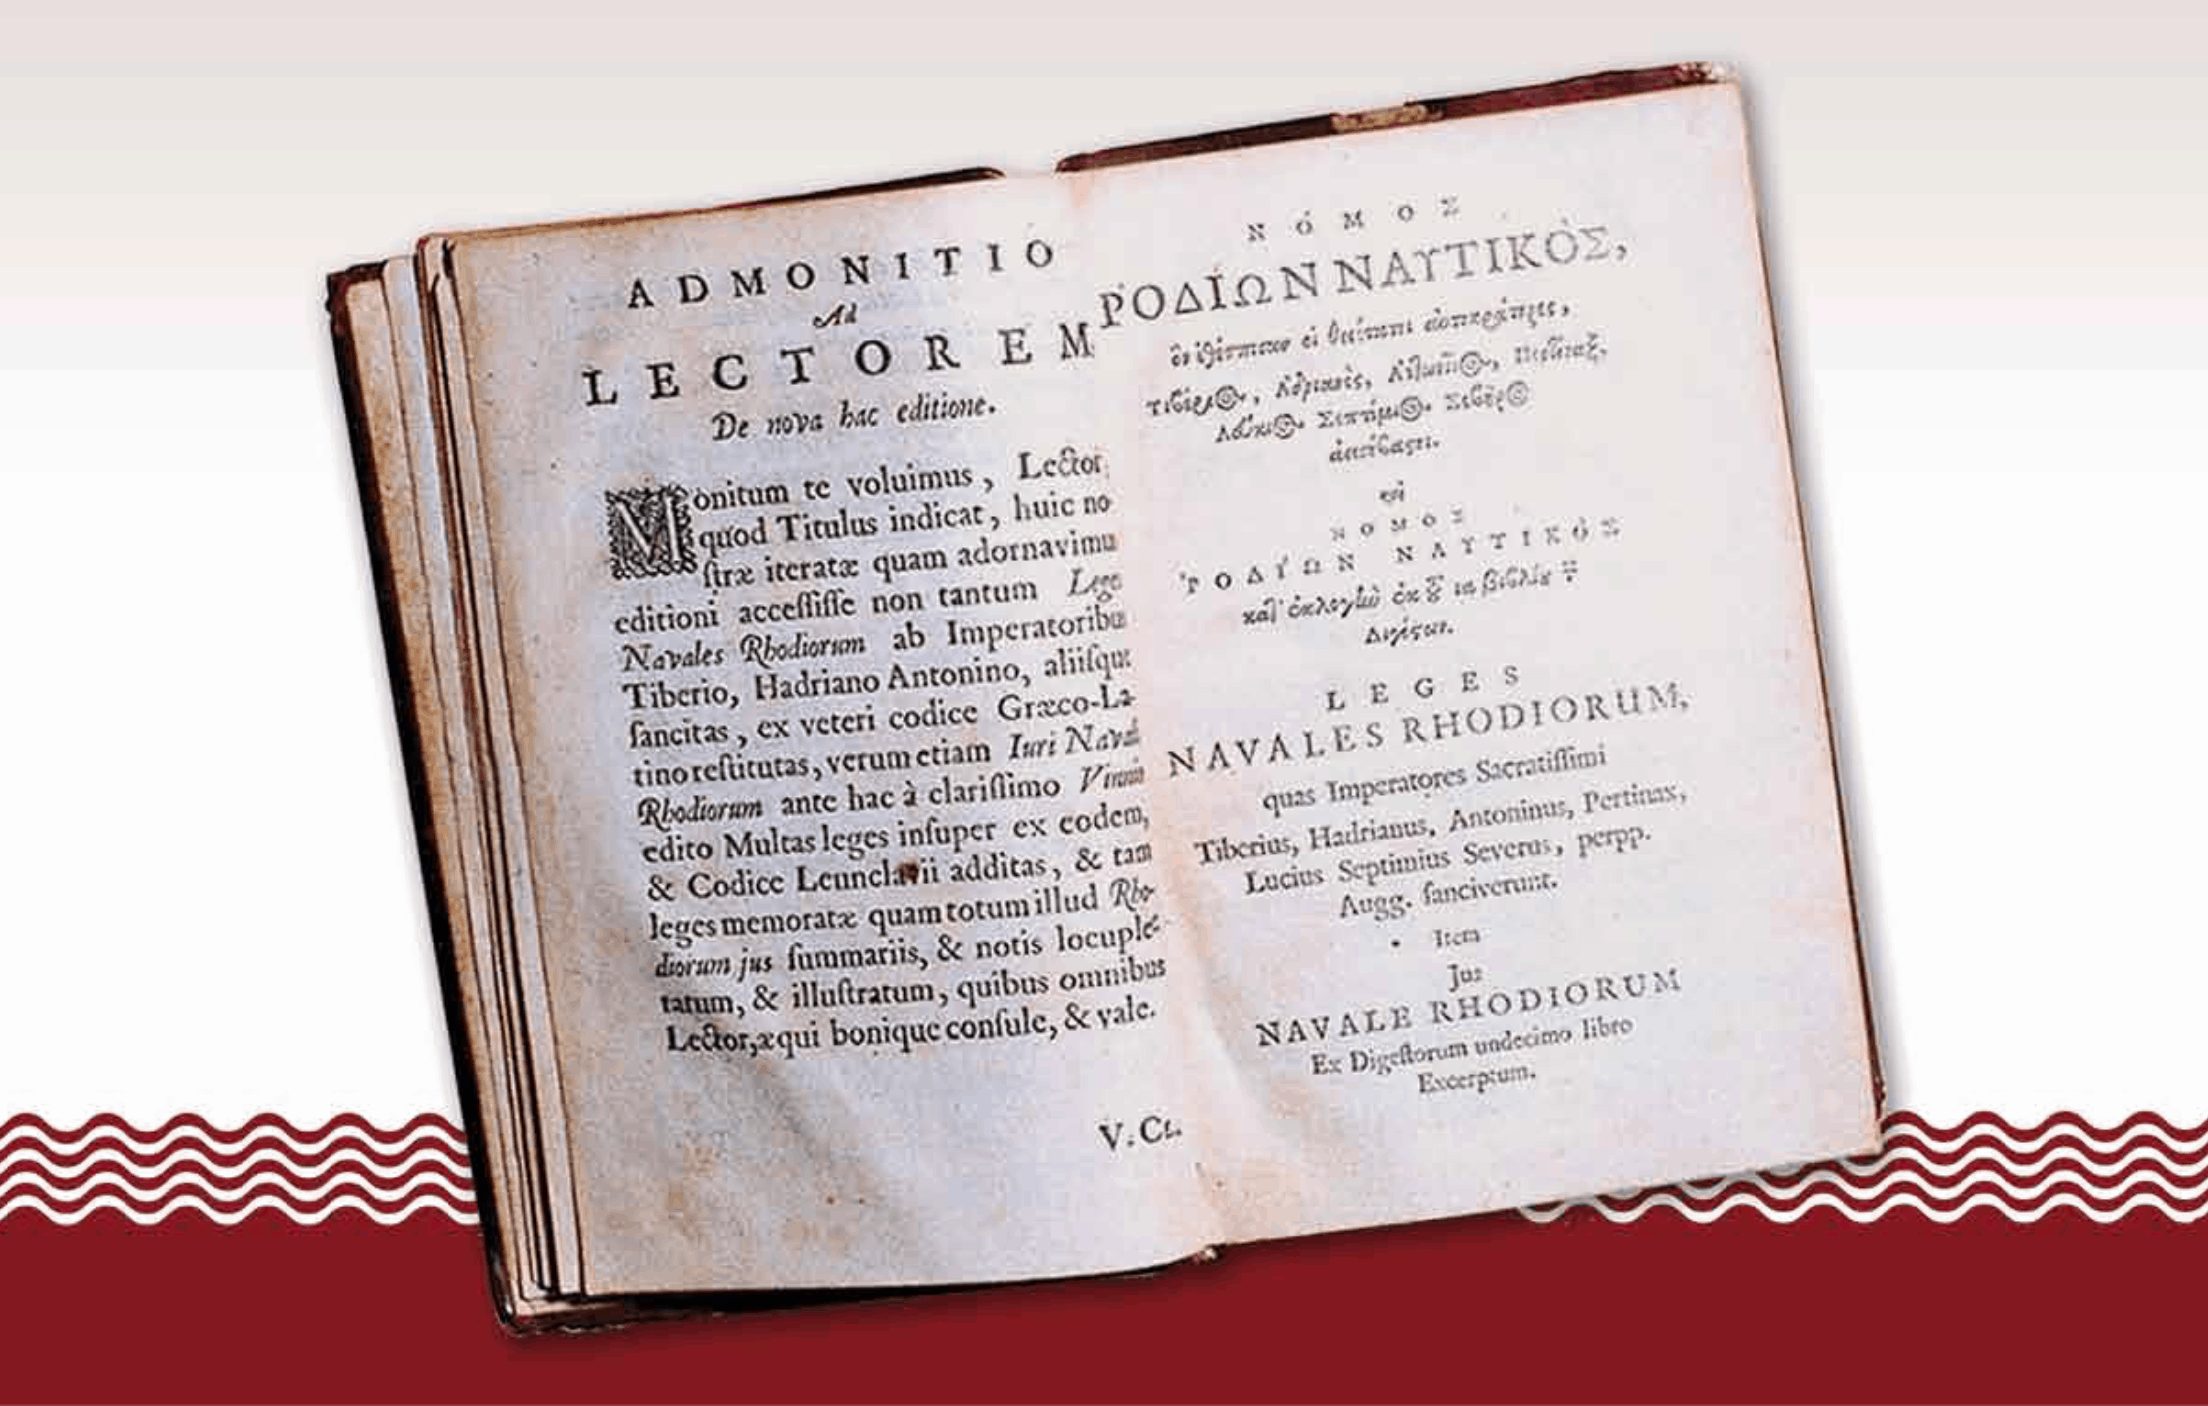 ADMONITIO
Ad
LECTOREM
De nova hac editione.
Monitum te voluimus, Lector,
quod Titulus indicat, huic no
ſtræ iteratæ quam adornavimu
editioni acceſſiſſe non tantum Lege
Navales Rhodiorum ab Imperatoribu
Tiberio, Hadriano Antonino, aliiſque
ſancitas, ex veteri codice Græco-La-
tino reſtitutas, verum etiam Iuri Navali
Rhodiorum ante hac à clariſſimo Vinnio
edito Multas leges inſuper ex eodem,
& Codice Leunclavii additas, & tam
leges memoratæ quam totum illud Rho-
diorum jus ſummariis, & notis locuple-
tatum, & illuſtratum, quibus omnibus
Lector, æqui bonique conſule, & vale.
V. CL.
ΝΌΜΟΣ
ῬΟΔΊΩΝ ΝΑΥΤΙΚῸΣ,
ΝΟΜΟΣ
ῬΟΔΊΩΝ ΝΑΥΤΙΚΌΣ
LEGES
NAVALES RHODIORUM,
quas Imperatores Sacratiſſimi
Tiberius, Hadrianus, Antoninus, Pertinax,
Lucius Septimius Severus, perpp.
Augg. ſanciverunt.
Item
Jus
NAVALE RHODIORUM
Ex Digeſtorum undecimo libro
Excerptum.